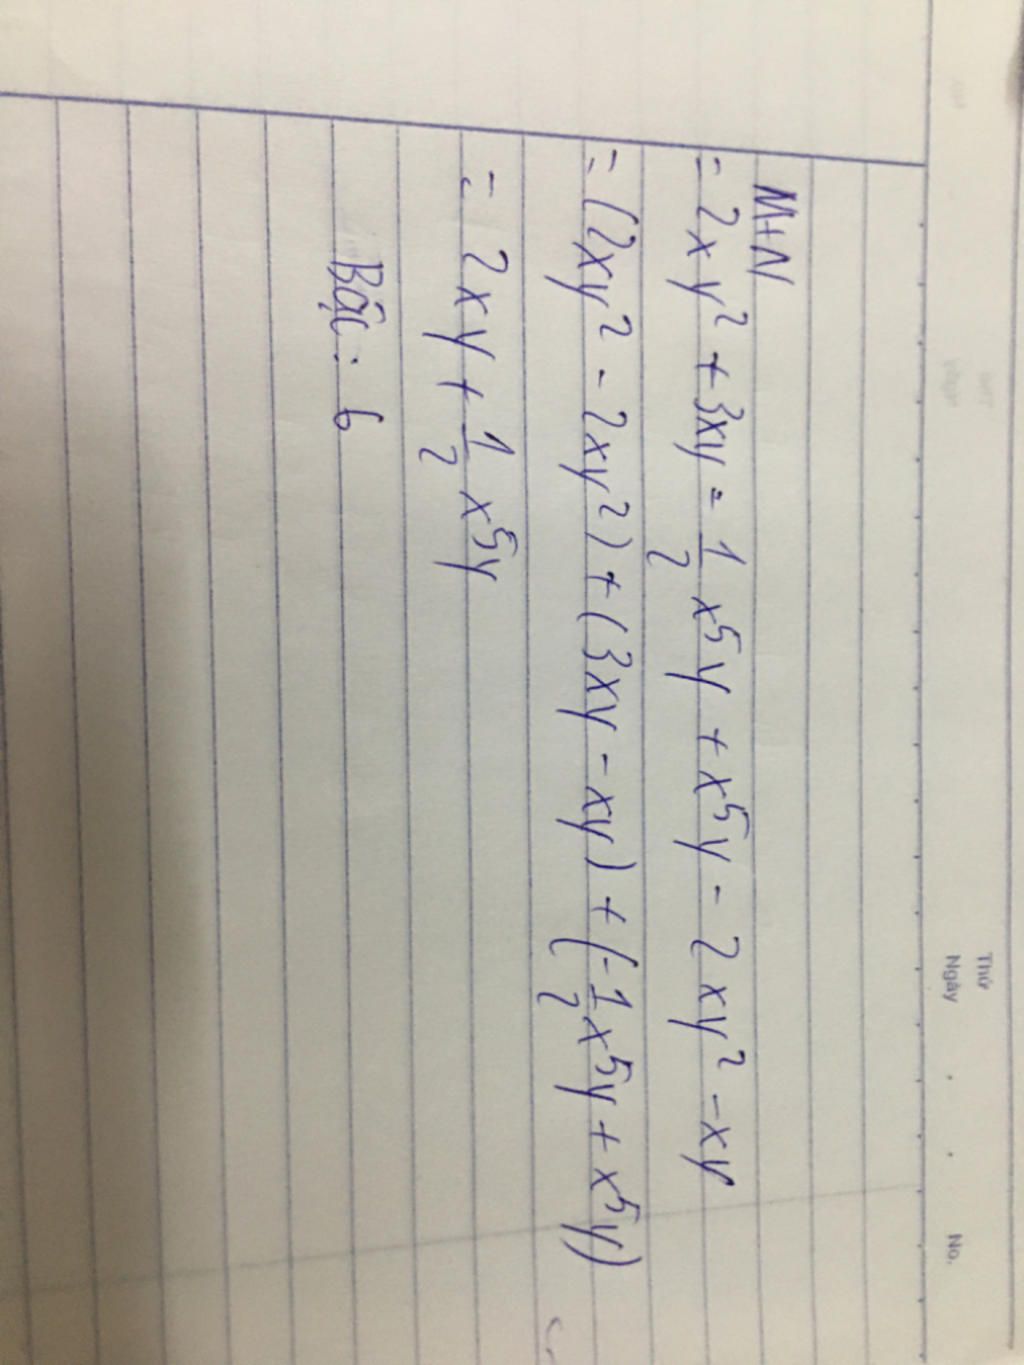 Thứ
Ngày . . No.
M+N
= 2xy² + 3xy - 1/2 x⁵y + x⁵y - 2xy² - xy
= (2xy² - 2xy²) + (3xy - xy) + (-1/2 x⁵y + x⁵y)
= 2xy + 1/2 x⁵y
Bậc: 6